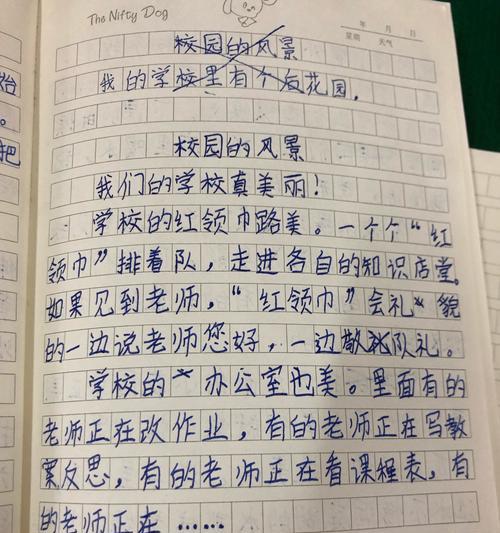 The Nifty Dog
年 月 日
星期 天气
校园的风景
我的学校里有个后花园，
校园的风景
我们的学校真美丽！
学校的红领巾路美。一个个“红
领巾”排着队，走进各自的知识店堂。
如果见到老师，“红领巾”会礼貌
的一边说老师您好，一边敬队礼。
学校的办公室也美。里面有的
老师正在改作业，有的老师正在写教
案反思，有的老师正在看课程表，有
的老师正在……
始
。
把